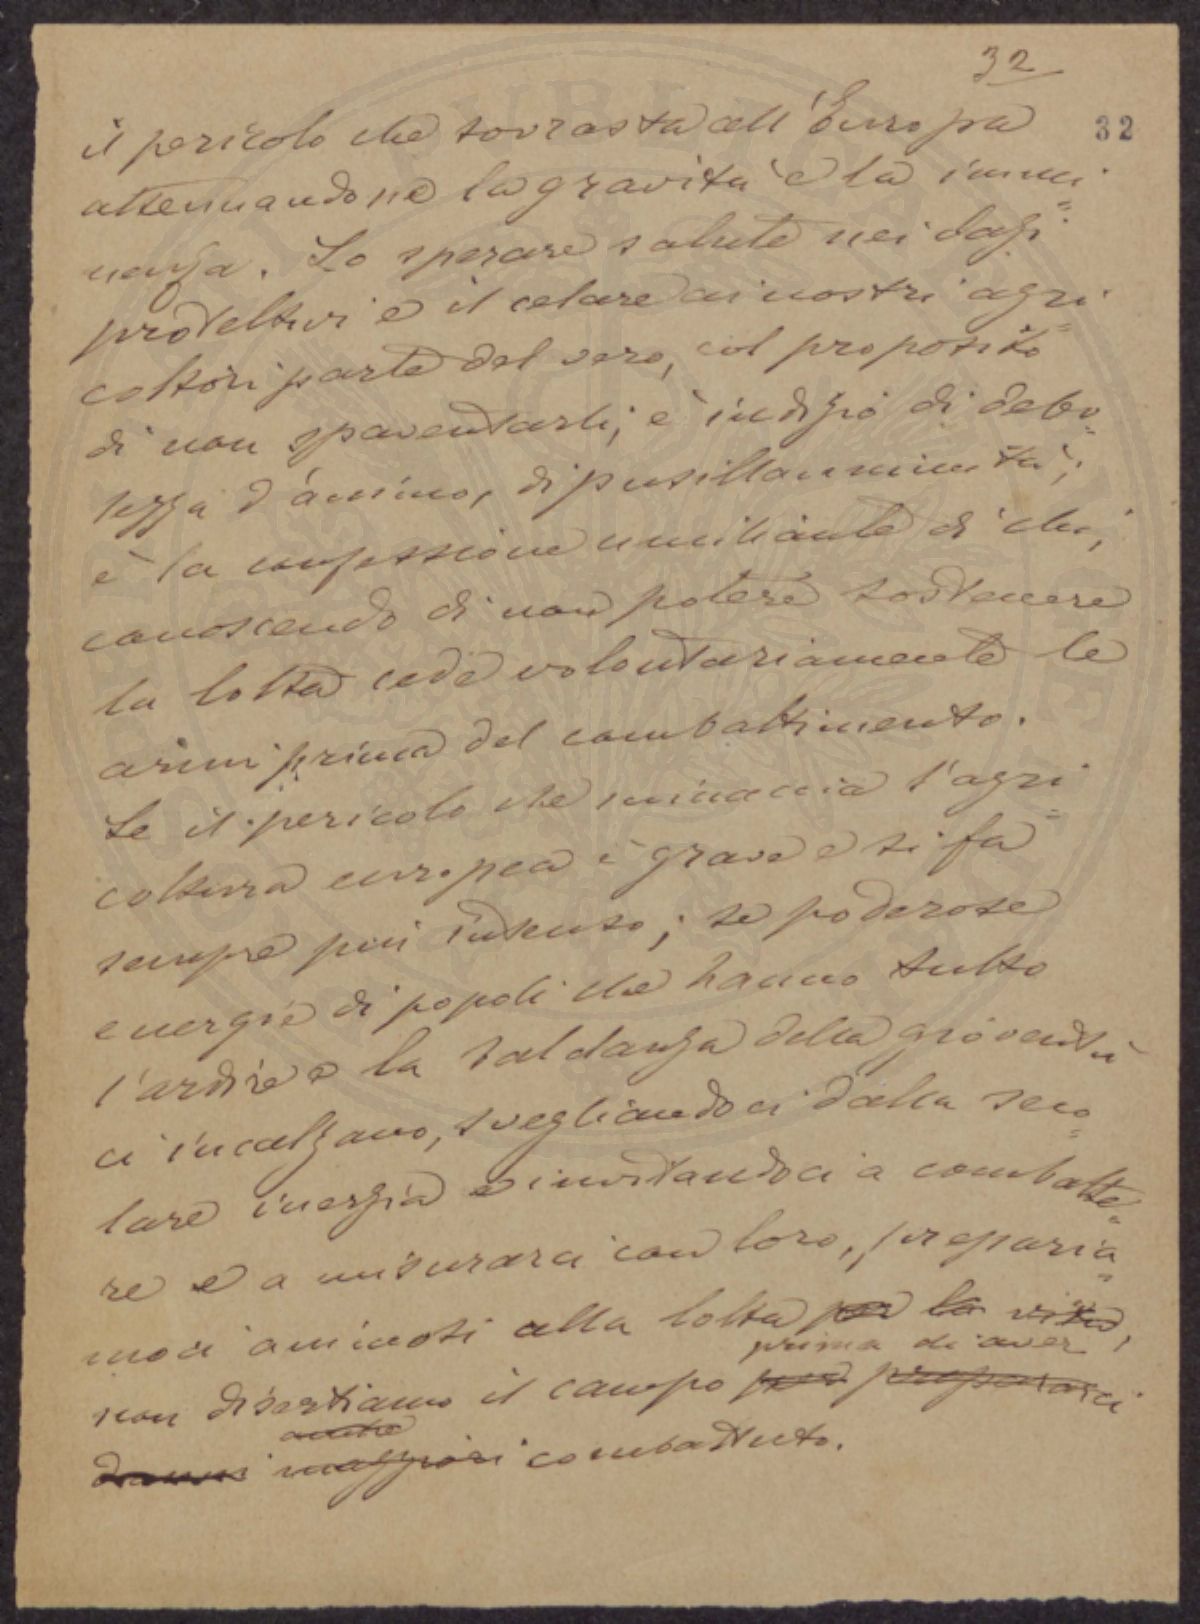 32
32
il pericolo che sovrasta all'Europa
attenuandone la gravità e la immi=
nenza. Lo sperare salute nei dazi
protettivi e il celare ai nostri agri=
coltori parte del vero, col proposito
di non spaventarli, è indizio di debo=
lezza d'animo, di pusillanimità;
è la confessione umiliante di chi,
conoscendo di non potere sostenere
la lotta cede volontariamente le
armi prima del combattimento.
Se il pericolo che minaccia l'agri=
coltura europea è grave e si fa
sempre più intenso; se poderose
energie di popoli che hanno tutto
l'ardire e la baldanza della gioventù
ci incalzano, svegliandoci dalla seco=
lare inerzia e invitandoci a combatte=
re e a misurarci con loro, preparia=
moci animosi alla lotta per la vita,
prima di aver
non disertiamo il campo per prepararci
anche
danni maggiori combattuto.